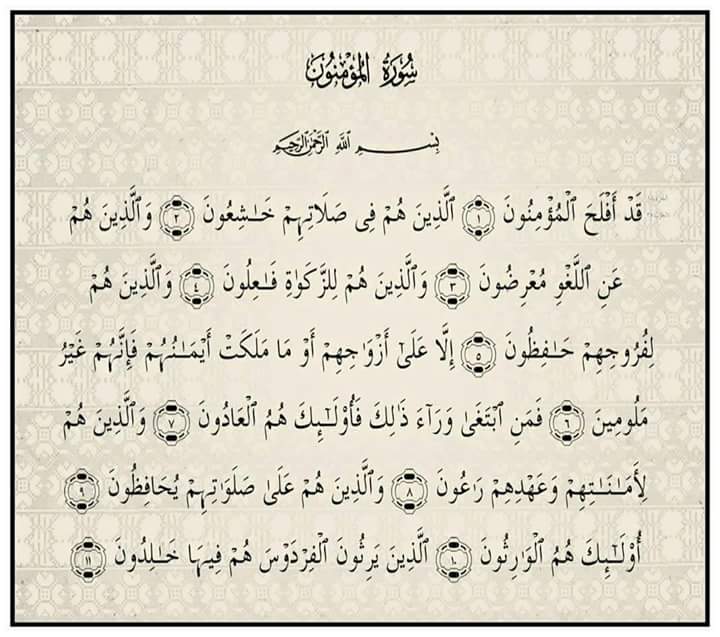 سُورَةُ الْمُؤْمِنُونَ
بِسْمِ ٱللَّهِ ٱلرَّحْمَٰنِ ٱلرَّحِيمِ
قَدْ أَفْلَحَ ٱلْمُؤْمِنُونَ ١ ٱلَّذِينَ هُمْ فِى صَلَاتِهِمْ خَـٰشِعُونَ ٢ وَٱلَّذِينَ هُمْ
عَنِ ٱللَّغْوِ مُعْرِضُونَ ٣ وَٱلَّذِينَ هُمْ لِلزَّكَوٰةِ فَـٰعِلُونَ ٤ وَٱلَّذِينَ هُمْ
لِفُرُوجِهِمْ حَـٰفِظُونَ ٥ إِلَّا عَلَىٰٓ أَزْوَٰجِهِمْ أَوْ مَا مَلَكَتْ أَيْمَـٰنُهُمْ فَإِنَّهُمْ غَيْرُ
مَلُومِينَ ٦ فَمَنِ ٱبْتَغَىٰ وَرَآءَ ذَٰلِكَ فَأُو۟لَـٰٓئِكَ هُمُ ٱلْعَادُونَ ٧ وَٱلَّذِينَ هُمْ
لِأَمَـٰنَـٰتِهِمْ وَعَهْدِهِمْ رَٰعُونَ ٨ وَٱلَّذِينَ هُمْ عَلَىٰ صَلَوَٰتِهِمْ يُحَافِظُونَ ٩
أُو۟لَـٰٓئِكَ هُمُ ٱلْوَٰرِثُونَ ١٠ ٱلَّذِينَ يَرِثُونَ ٱلْفِرْدَوْسَ هُمْ فِيهَا خَـٰلِدُونَ ١١